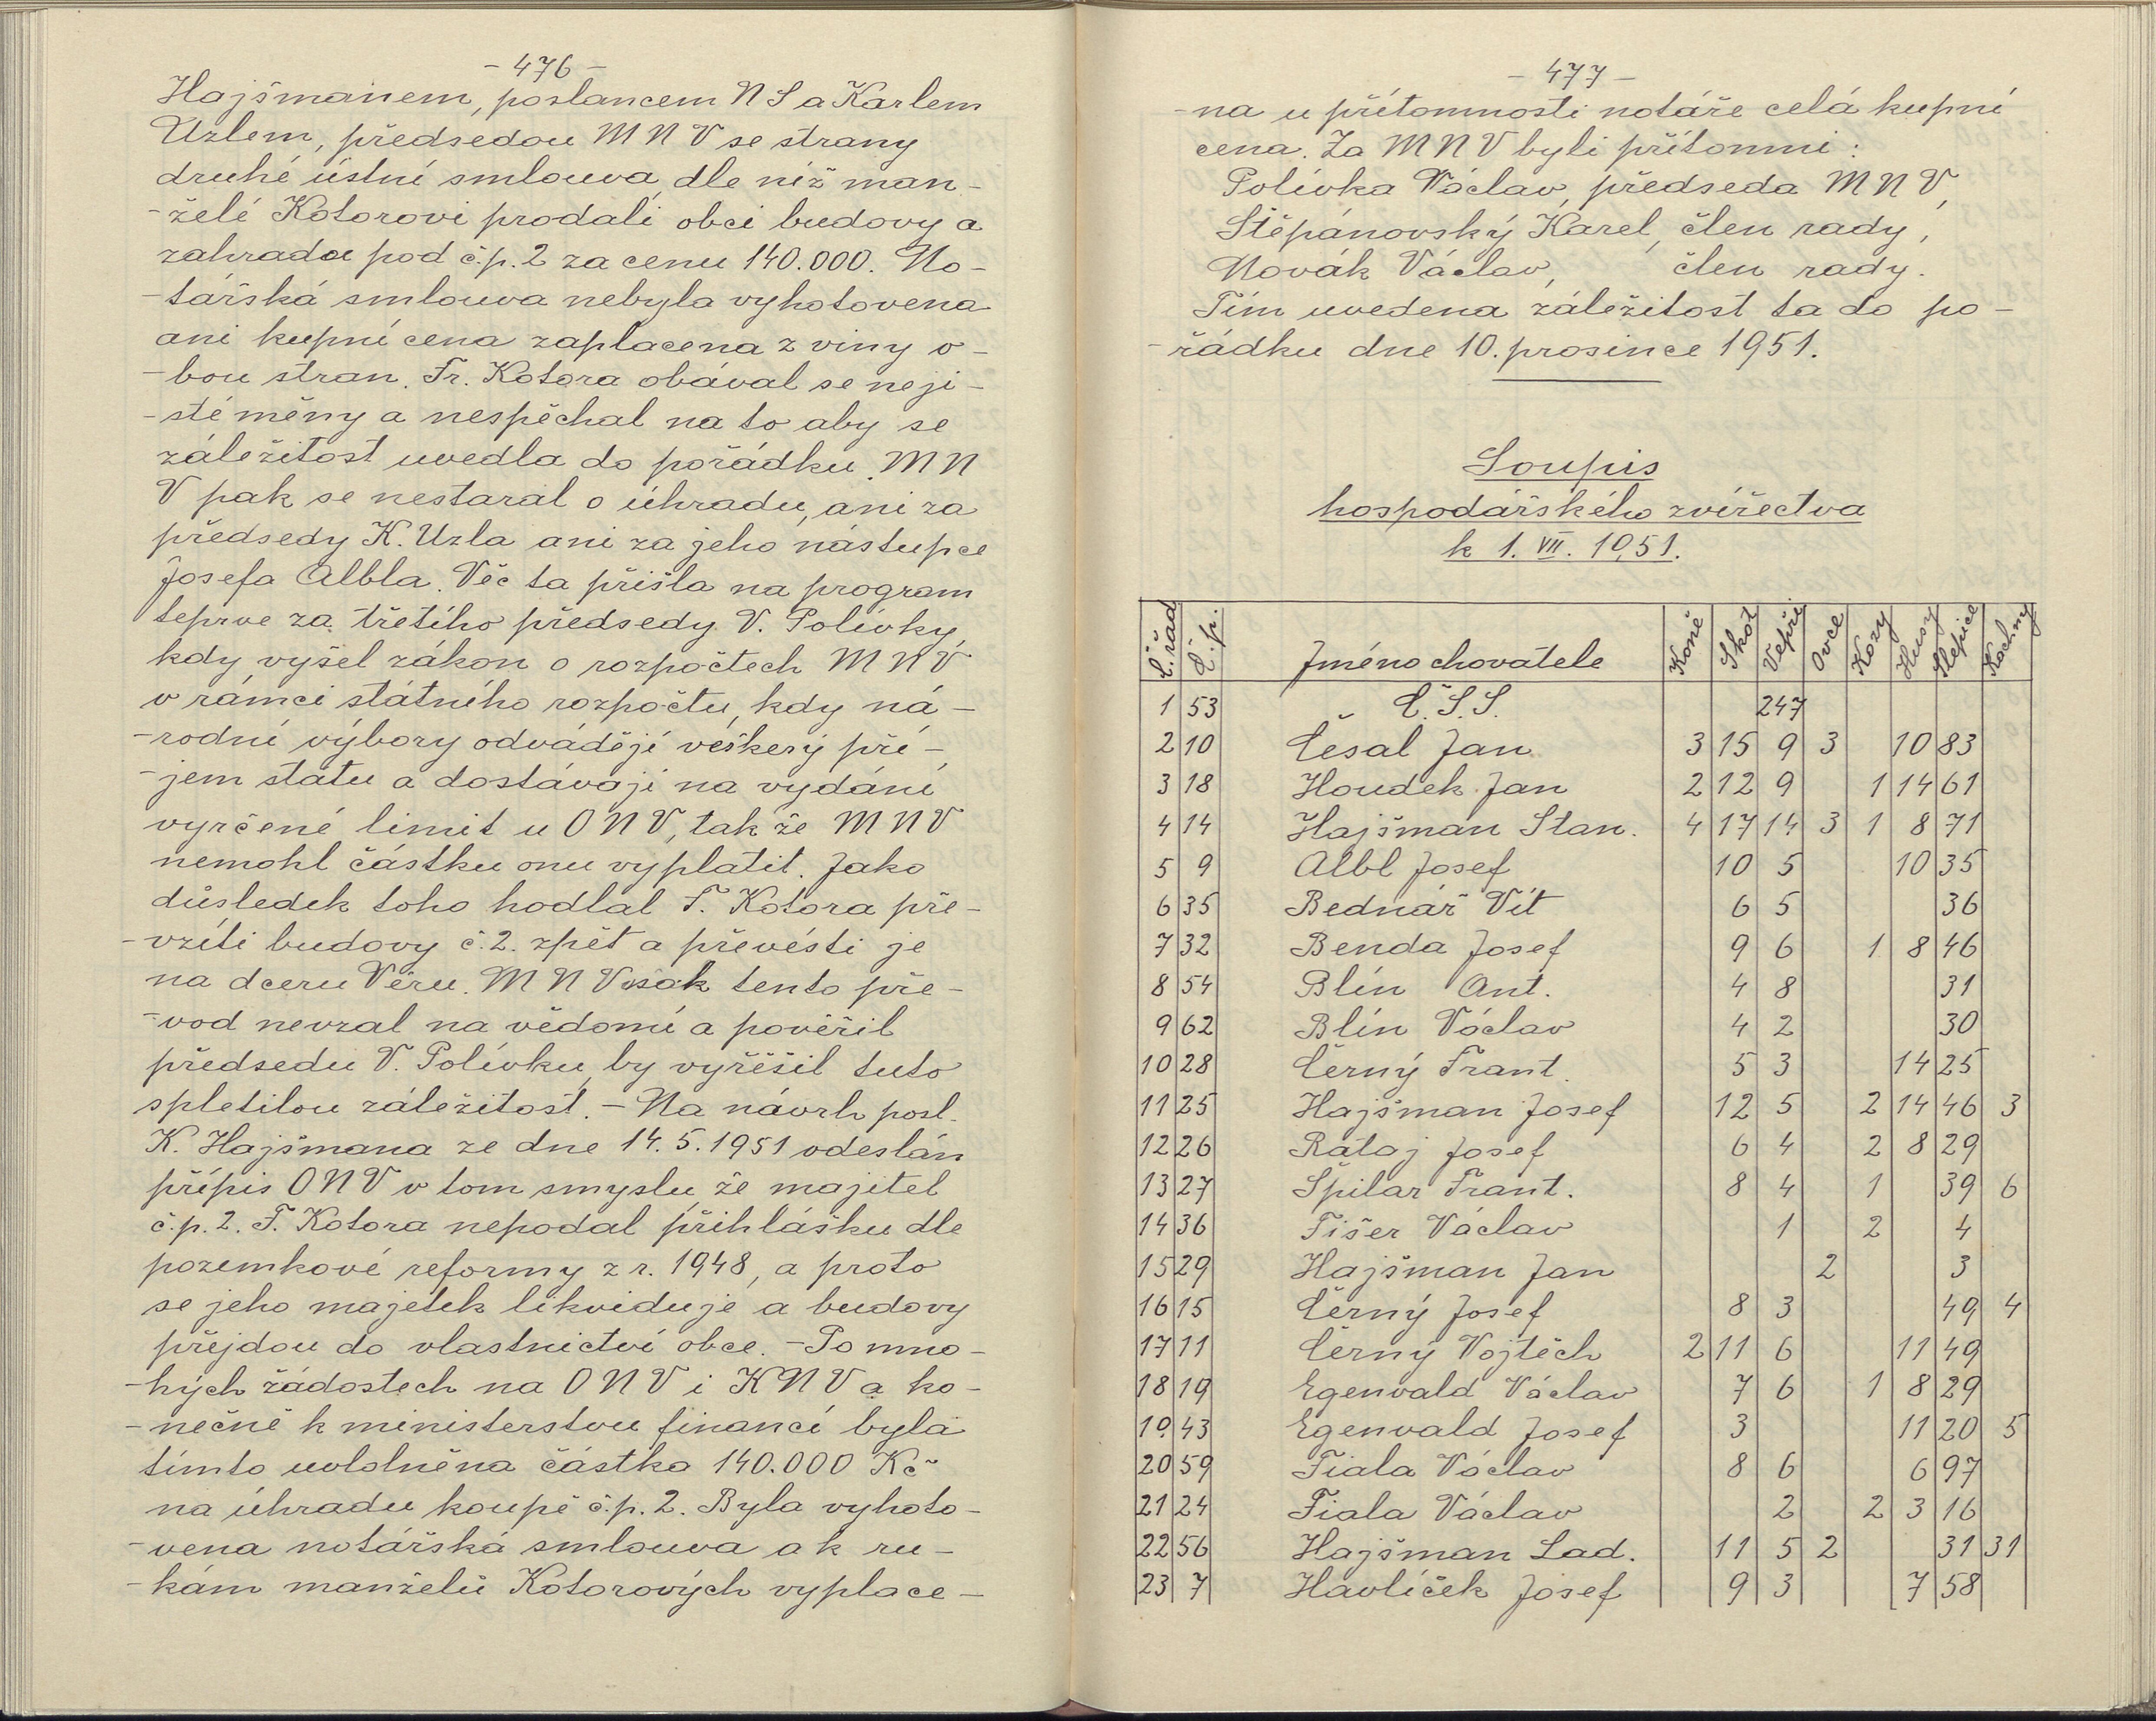 - 476 -
Hajšmanem, poslancem N S a Karlem
Uzlem, předsedou M N V se strany
druhé ústní smlouva, dle níž man-
-želé Kotorovi prodali obci budovy a
zahradu pod č.p. 2 za cenu 140.000. No-
-tářská smlouva nebyla vyhotovena
ani kupní cena zaplacena z viny o-
-bou stran. Fr. Kotora obával se neji-
-sté měny a nespěchal na to aby se
záležitost uvedla do pořádku. M N
V pak se nestaral o úhradu, ani za
předsedy K. Uzla ani za jeho nástupce
Josefa Albla. Věc ta přišla na program
teprve za třetího předsedy V. Polívky,
kdy vyšel zákon o rozpočtech M N V
v rámci státního rozpočtu, kdy ná-
-rodní výbory odvádějí veškerý pří-
-jem státu a dostávají na vydání
vyrčené limit u O N V, tak že M N V
nemohl částku onu vyplatit. Jako
důsledek toho hodlal F. Kotora pře-
-vzíti budovy č. 2. zpět a převésti je
na dceru Věru. M N V však tento pře-
-vod nevzal na vědomí a pověřil
předsedu V. Polívku, by vyřešil tuto
spletilou záležitost. - Na návrh posl.
K. Hajšmana ze dne 14. 5. 1951 odeslán
přípis O N V v tom smyslu, že majitel
č.p. 2. F. Kotora nepodal přihlášku dle
pozemkové reformy z r. 1948, a proto
se jeho majetek likviduje a budovy
přejdou do vlastnictví obce. - Po mno-
-hých žádostech na O N V i K N V a ko-
-nečně k ministerstvu financí byla
tímto uvolněna částka 140.000 Kč
na úhradu koupě č.p. 2. Byla vyhoto-
-vena notářská smlouva a k ru-
-kám manželů Kotorových vyplace-
- 477 -
-na u přítomnosti notáře celá kupní
cena. Za M N V byli přítomni:
Polívka Václav, předseda M N V,
Štěpánovský Karel, člen rady,
Novák Václav, člen rady.
Tím uvedena záležitost ta do po-
-řádku dne 10. prosince 1951.
Soupis
hospodářského zvířectva
k 1. VII. 1951.
Č. řad Č. p. Jméno chovatele Koně Skot Vepři Ovce Kozy Husy Slepice Kachny
1 53 Č. S. S. 247
2 10 Česal Jan 3 15 9 3 10 83
3 18 Houdek Jan 2 12 9 1 14 61
4 14 Hajšman Stan. 4 17 14 3 1 8 71
5 9 Albl Josef 10 5 10 35
6 35 Bednář Vít 6 5 36
7 32 Benda Josef 9 6 1 8 46
8 54 Blín Ant. 4 8 31
9 62 Blín Václav 4 2 30
10 28 Černý Frant. 5 3 14 25
11 25 Hajšman Josef 12 5 2 14 46 3
12 26 Rataj Josef 6 4 2 8 29
13 27 Špilar Frant. 8 4 1 39 6
14 36 Fišer Václav 1 2 4
15 29 Hajšman Jan 2 3
16 15 Černý Josef 8 3 49 4
17 11 Černý Vojtěch 2 11 6 11 49
18 19 Egenvald Václav 7 6 1 8 29
19 43 Egenvald Josef 3 11 20 5
20 59 Fiala Václav 8 6 6 97
21 24 Fiala Václav 2 2 3 16
22 56 Hajšman Lad. 11 5 2 31 31
23 7 Havlíček Josef 9 3 7 58